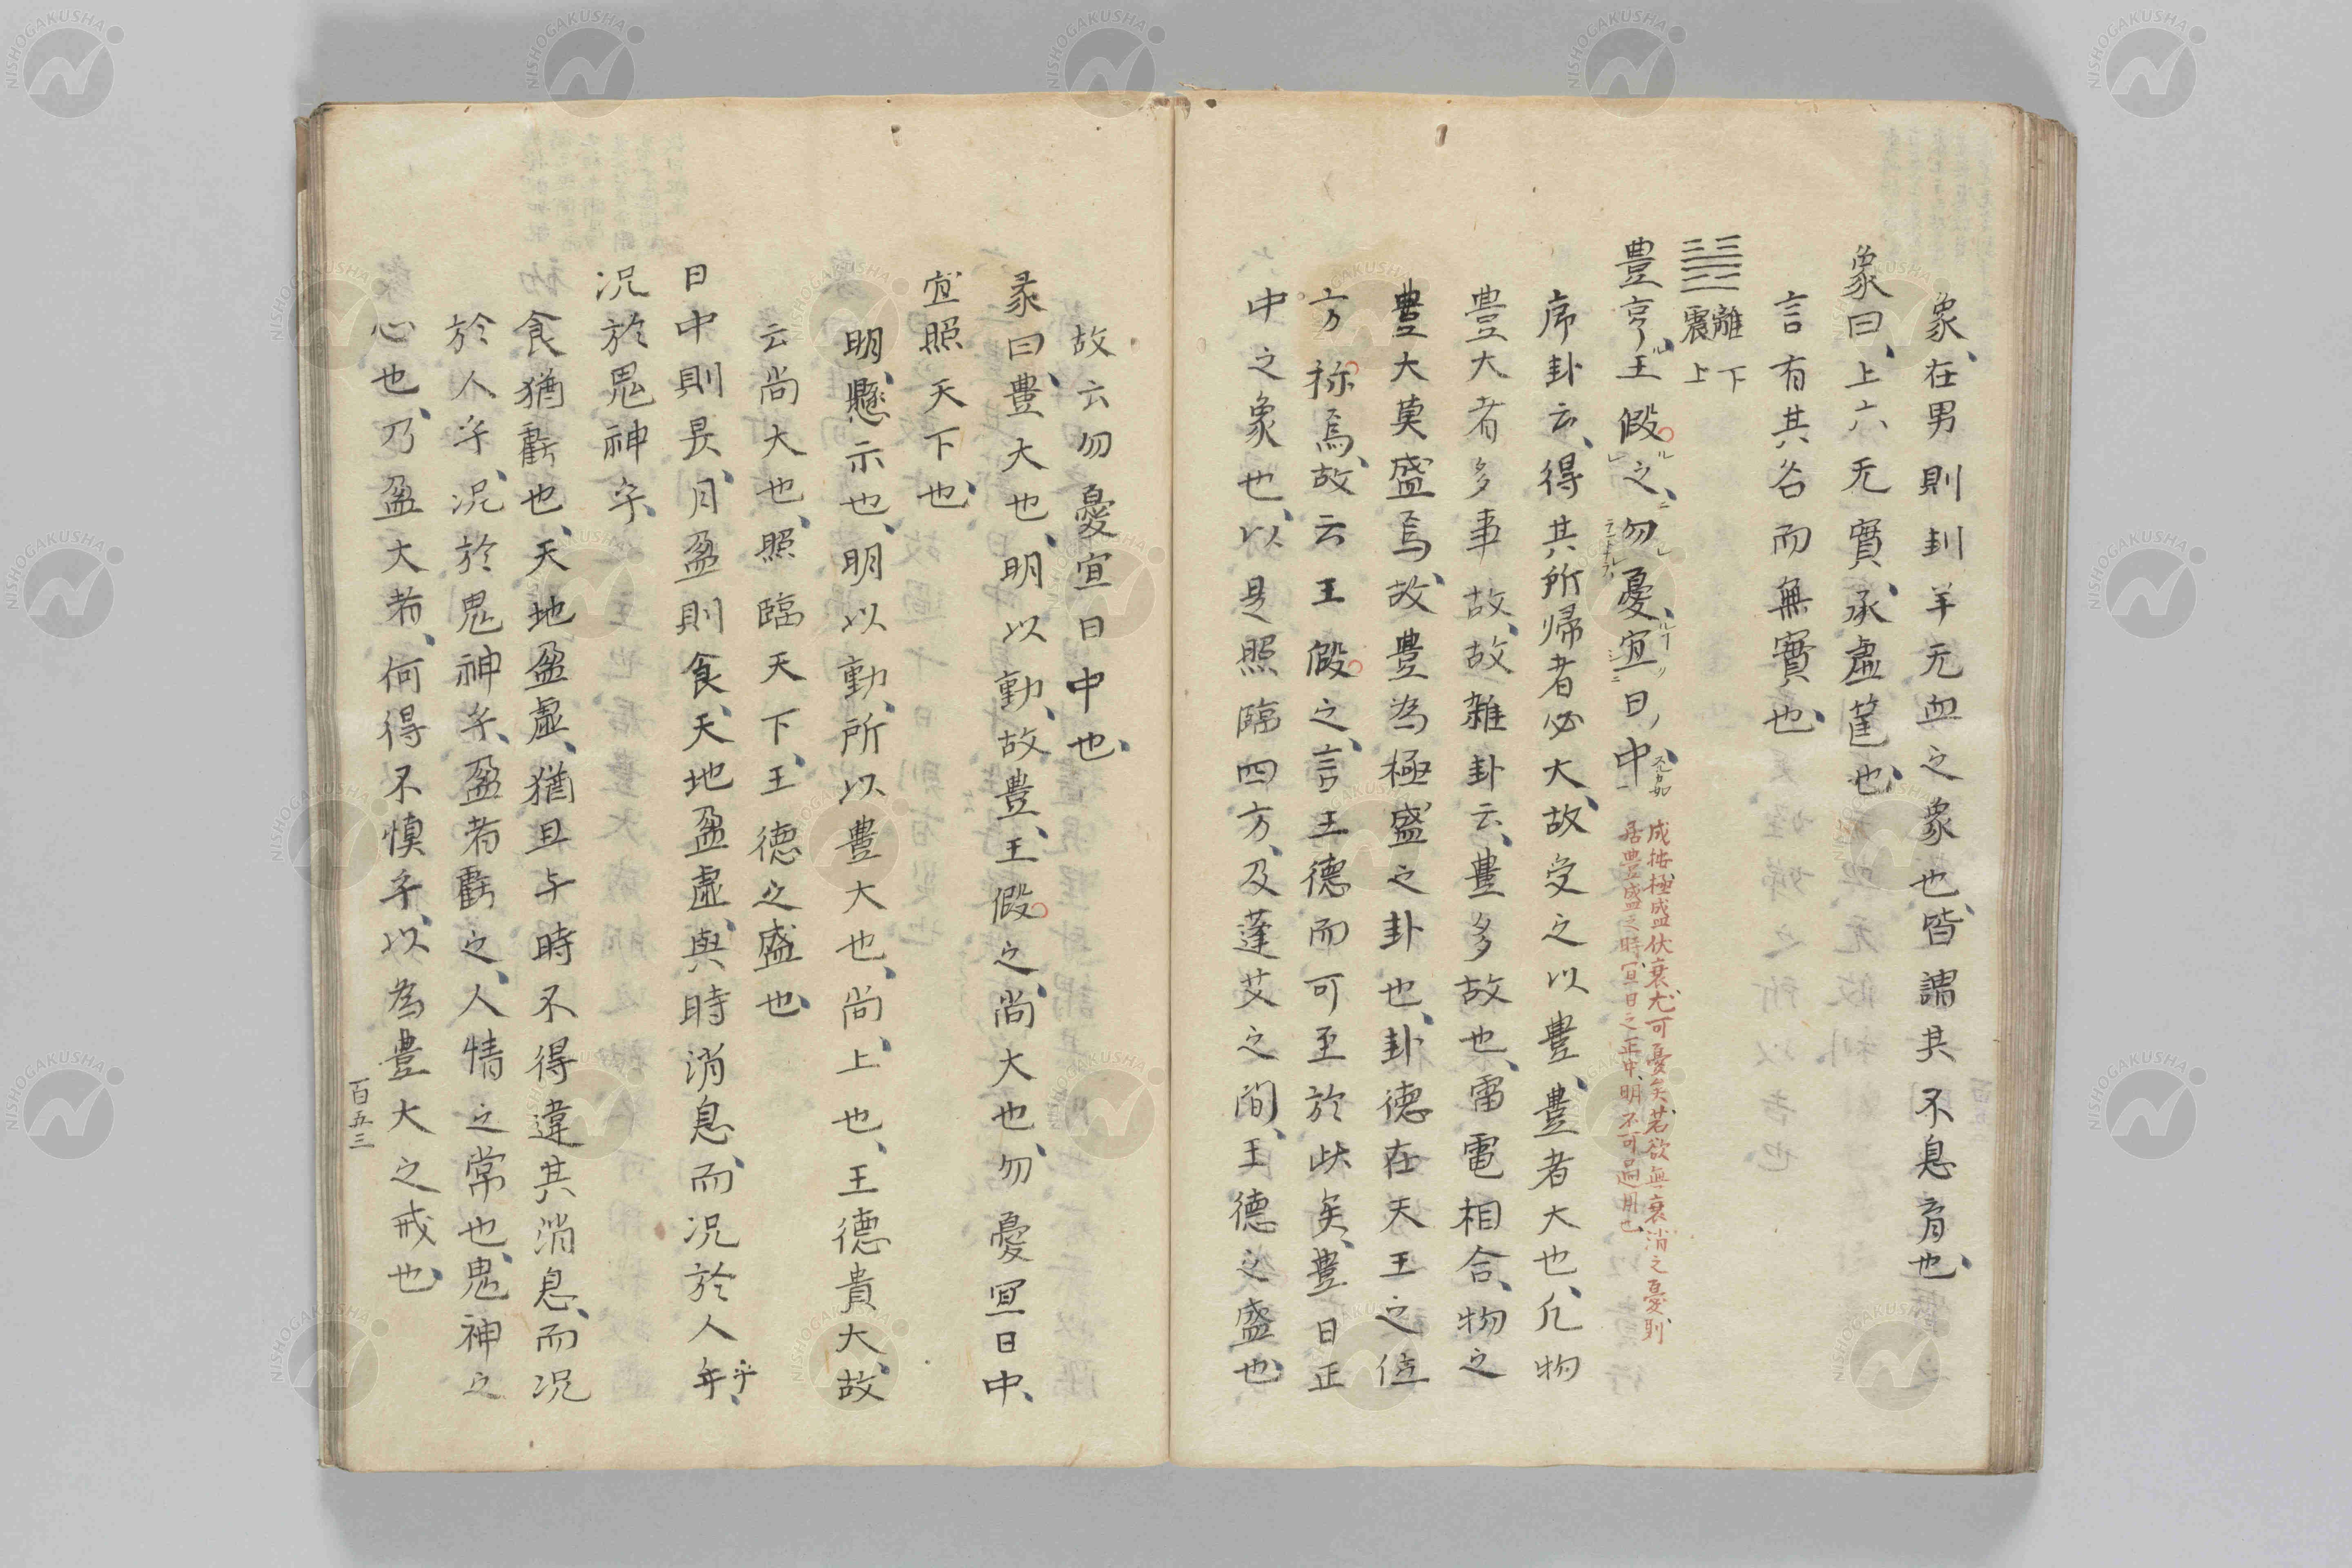 象、在男則刲羊无血之象也、皆謂其不息育也、
象曰、上六无實、承虛筐也、
言有其谷而無實也、
離下
震上
豊亨、王假之、勿憂、宜日中、
成按極盛伏衰尤可憂矣、若欲無衰消之憂則
居豊盛之時、宜日之正中、明不可過用也、
序卦云、得其所帰者必大、故受之以豊、豊者大也、凡物
豊大者多事故、故雜卦云、豊多故也、雷電相合、物之
豊大莫盛焉、故豊為極盛之卦也、卦德在天王之位
方称焉、故云王假之、言王德而可至於此矣、豊日正
中之象也、以是照臨四方、及蓬艾之間、王德之盛也、
故云勿憂宜日中也、
彖曰、豊大也、明以動、故豊、王假之、尚大也、勿憂宜日中、
宜照天下也、
明、懸示也、明以動、所以豊大也、尚、上也、王德貴大、故
云尚大也、照臨天下、王德之盛也、
日中則昃、月盈則食、天地盈虛、與時消息、而况於人乎、
况於鬼神乎、
食猶虧也、天地盈虛、猶且与時不得違其消息、而况
於人乎、况於鬼神乎、盈者虧之、人情之常也、鬼神之
心也、乃盈大者、何得不慎乎、以為豊大之戒也、
百五三
NISHOGAKUSHA